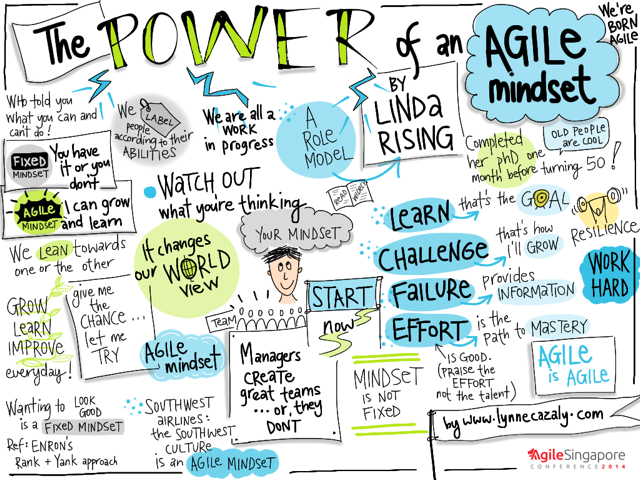 The POWER of an
AGILE
mindset
We're
BORN
AGILE
BY
LINDA
RISING
Who told you
what you can and
can't do!
FIXED
MINDSET
You have
it or you
don't
AGILE
MINDSET
I can grow
and learn
We LEAN towards
one or the other
We
LABEL
people
according to their
ABILITIES
We are all a
WORK
in progress
A
ROLE
MODEL
Completed
her PhD one
month before turning 50!
OLD PEOPLE
are COOL
WATCH OUT
what you're thinking
READ
MORE
It changes
our WORLD
view
YOUR MINDSET
START
now
TEAM
LEARN
that's the GOAL
CHALLENGE
that's how
I'll GROW
FAILURE
provides
INFORMATION
EFFORT
is the
Path to MASTERY
IS GOOD.
(PRAISE the
EFFORT
not the talent)
RESILIENCE
WORK
HARD
AGILE
is AGILE
GROW
LEARN
IMPROVE
everyday!
give me
the
CHANCE...
let me
TRY
AGILE
mindset
Managers
CREATE
great teams
...or, they
DONT
MINDSET
IS NOT
FIXED
Wanting to LOOK
GOOD
is a FIXED MINDSET
Ref: ENRON'S
Rank + Yank approach
SOUTHWEST
AIRLINES:
the SOUTHWEST
CULTURE
is an AGILE MINDSET
by www.lynnecazaly.com
AgileSingapore
CONFERENCE 2014